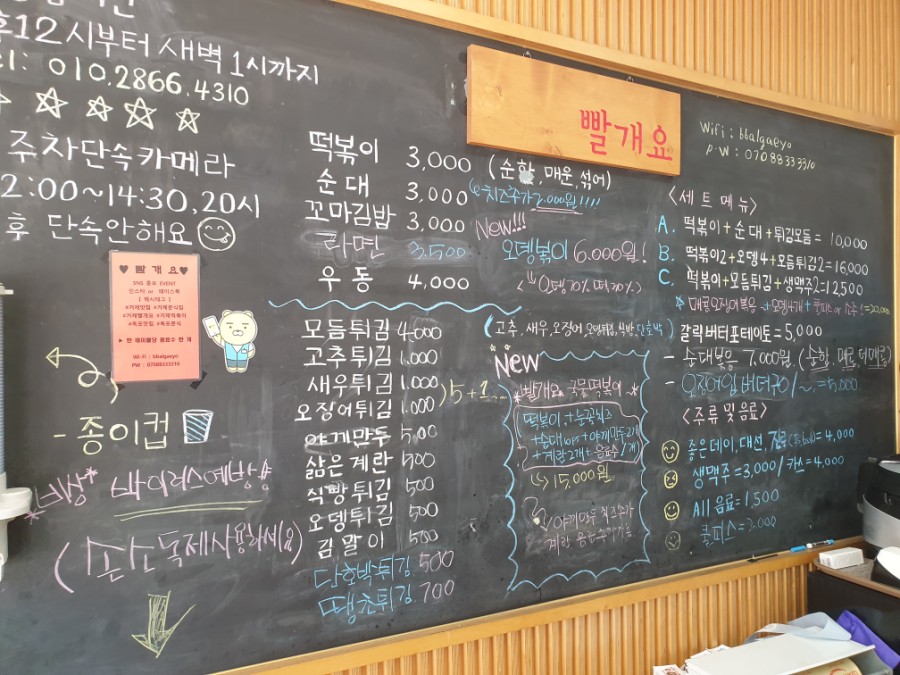 12시부터 새벽 1시까지
010.2866.4310
주차단속카메라
2:00~14:30, 20시
후 단속안해요
♥ 빨 개 요 ♥
SNS 홍보 EVENT
인스타 or 페이스북
[ 해시태그 ]
#거제맛집 #거제분식집
#거제빨개요 #거제떡볶이
#옥포맛집 #옥포분식
Wi-Fi : bbalgaeyo
PW : 07088333310
- 종이컵
바이러스예방용
(손소독제사용하세요)
떡볶이 3,000 (순한, 매운, 섞어)
치즈추가 2,000원!!!!
순대 3,000
꼬마김밥 3,000
라면 3,500
우동 4,000
New!!!
오뎅볶이 6.000원!
(오뎅 70% 떡 30%)
모듬튀김 4,000 (고추, 새우, 오징어, 오뎅튀김, 식빵, 단호박)
고추튀김 1,000
새우튀김 1,000
오징어튀김 1,000
)5+1
야끼만두 500
삶은계란 500
식빵튀김 500
오뎅튀김 500
김말이 500
단호박튀김 500
땡초튀김 700
New
빨개요 국물떡볶이
떡볶이+눈꽃치즈
+순대+야끼만두2개
+계란2개+음료수1개
15,000원
빨개요
Wifi : bbalgaeyo
P.W : 07088333310
<세트메뉴>
A. 떡볶이+순대+튀김모듬= 10,000
B. 떡볶이2+오뎅4+모듬튀김2=16,000
C. 떡볶이+모듬튀김+생맥주2=12,500
갈릭버터포테이토=5,000
- 순대볶음 7,000원. (순한, 매콤, 더매콤)
=5,000
<주류 및 음료>
좋은데이, 대선, 진로 = 4,000
생맥주=3,000/ 카스=4,000
All 음료=1,500
쿨피스=2.000